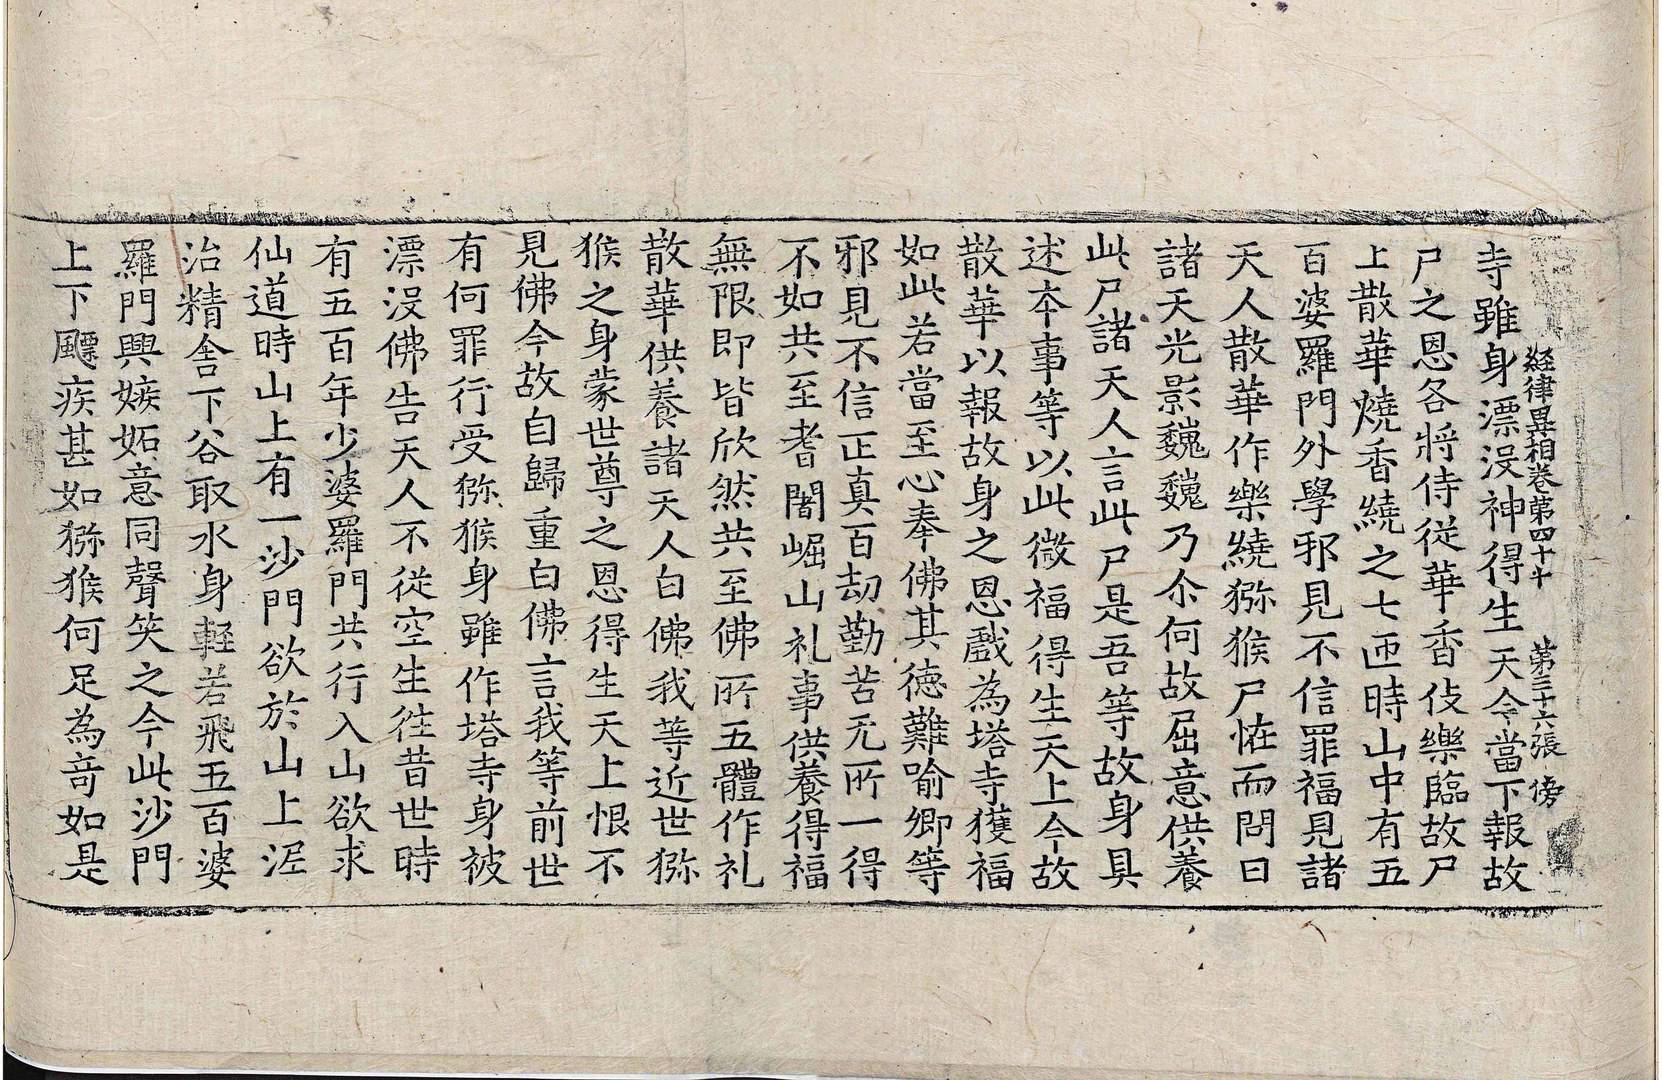 経律異相卷第四十七 第三十六張 傍
寺雖身漂没神得生天今當下報故
尸之恩各將侍従華香伎樂臨故尸
上散華燒香繞之七匝時山中有五
百婆羅門外學邪見不信罪福見諸
天人散華作樂繞猕猴尸恠而問曰
諸天光影巍巍乃尒何故屈意供養
此尸諸天人言此尸是吾等故身具
述夲事等以此微福得生天上今故
散華以報故身之恩戲為塔寺獲福
如此若當至心奉佛其德難喻卿等
邪見不信正真百劫勤苦无所一得
不如共至耆闍崛山礼事供養得福
無限即皆欣然共至佛所五體作礼
散華供養諸天人白佛我等近世猕
猴之身蒙世尊之恩得生天上恨不
見佛今故自歸重白佛言我等前世
有何罪行受猕猴身雖作塔寺身被
漂没佛告天人不従空生往昔世時
有五百年少婆羅門共行入山欲求
仙道時山上有一沙門欲於山上泥
治精舍下谷取水身軽若飛五百婆
羅門興嫉妬意同聲笑之今此沙門
上下飃疾甚如猕猴何足為竒如是